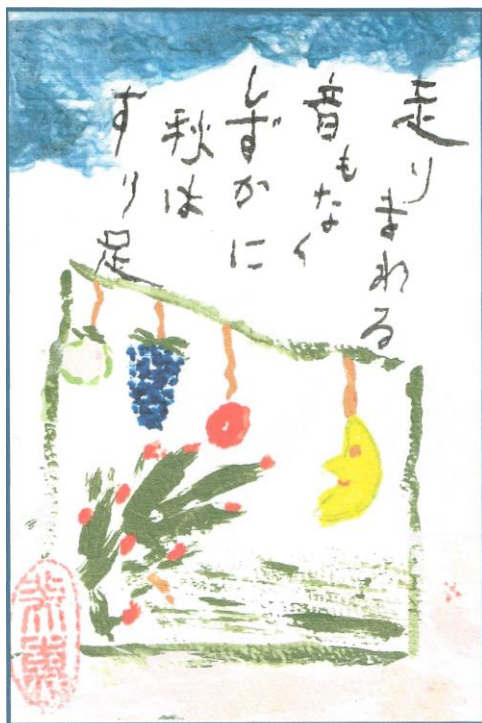 走りまわる
音もなく
しずかに
秋は
すり足